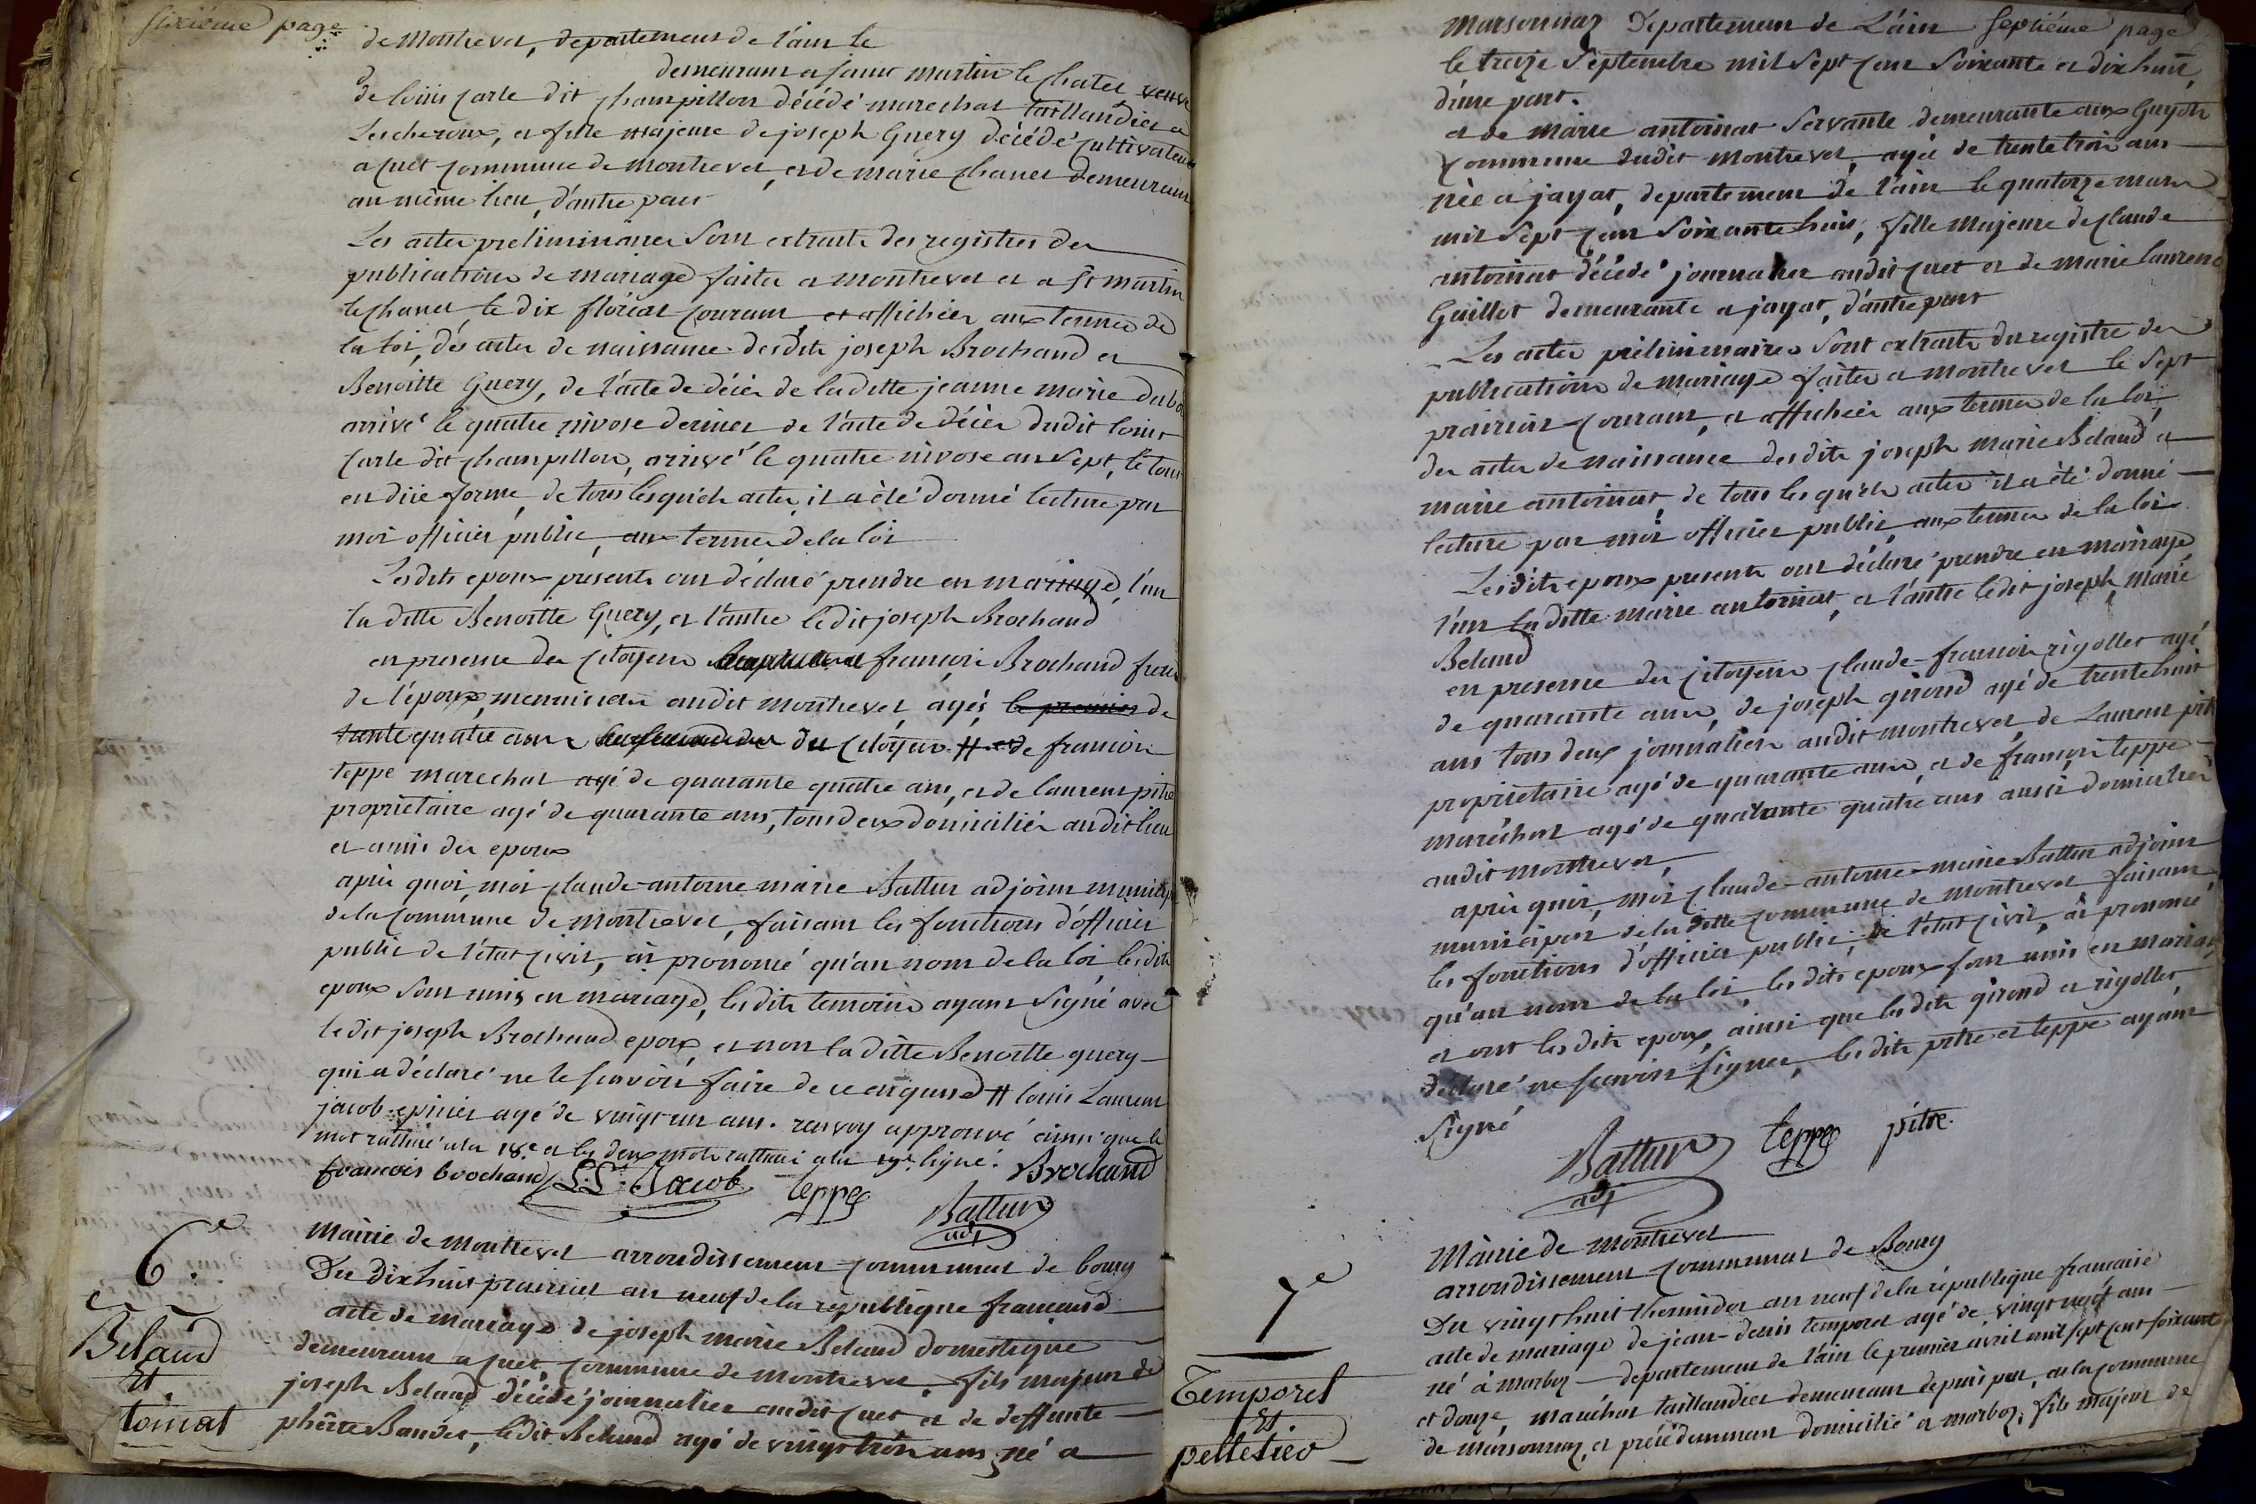 sixiéme page
de montrevel, departement de l'ain le
demeurant a saint martin le chatel veuve
de loüis carle dit champillon décédé marechal taillandier a
Lescheroux, et fille majeure de joseph Guery décédé cultivateur
a cuet commune de montrevel, et de marie chanel demeurant
au même lieu, d'autre part
Les actes preliminaires sont extraits des registres des
publications de mariage faites a montrevel et a st martin
le chatel, le dix floréal courant, et affichées aux termes de
la loi, des actes de naissance desdits joseph Brochand et
Benoitte Guery, de l'acte de décès de laditte jeanne marie dubo
arrivé le quatre nivose dernier de l'acte de décès dudit louis
carle dit champillon, arrivé le quatre nivose an sept, le tout
en düe forme, de tous lesquels actes, il a été donné lecture par
moi officier public, aux termes de la loi
Lesdits epoux presents ont déclaré prendre en mariage, l'un
la ditte Benoitte Guery, et l'autre ledit joseph Brochand
en presence des citoyens françois Brochand frere
de l'époux, menuisier audit montrevel, agés le premier de
trante quatre ans du citoyen # et de françois
teppe marechal agé de quarante quatre ans, et de laurent pitre
proprietaire agé de quarante ans, tous deux domiciliés audit lieu
et amis des epoux
après quoi, moi claude-antoine marie Battur adjoint municipal
de la commune de montrevel, faisant les fonctions d'officier
public de l'état civil, ai prononcé qu'au nom de la loi, lesdits
epoux sont unis en mariage, lesdits temoins ayant signé avec
ledit joseph Brochand epoux, et non la ditte Benoitte guery
qui a déclaré ne le sçavoir faire de ce enquise # louis Laurent
jacob epicier agé de vingt un ans. renvoy approuvé ainsi que le
mot raturé a la 18.e et les deux mots raturés a la 19.e ligne.
Brochand
francois brochand L. L. Jacob teppe Battur
adj
6.e
Belaud
et
toinat
Mairie de montrevel arrondissement communal de bourg
Du dix huit prairial an neuf de la republique françoise
acte de mariage de joseph marie Belaud domestique
demeurant a cuet, commune de montrevel, fils majeur de
joseph Belaud décédé journalier audit cuet et de deffunte
phérre Baudet, ledit Belaud agé de vingt trois ans, né a
marsonnaz Departement de L'ain septiéme page
le treize septembre mil sept cent soixante et dix huit,
d'une part.
et de marie antoinat servante demeurante aux Guyots
commune dudit montrevel, agée de trente trois ans
née a jayat, departement de l'ain le quatorze mars
mil sept cent soixante huit, fille majeure de claude
antoinat décédé journalier audit cuet et de marie laurence
Guillot demeurante a jayat, d'autre part
Les actes préliminaires sont extraits du registre des
publications de mariage faites a montrevel le sept
prairial courant, et affichées aux termes de la loi,
des actes de naissance desdits joseph marie Belaud et
marie antoinat, de tous lesquels actes il a été donné
lecture par moi officier public, aux termes de la loi.
Lesdits epoux presents ont déclaré prendre en mariage
l'un laditte marie antoinat, et l'autre ledit joseph marie
Belaud
en presence des citoyens claude-françois rigollet agé
de quarante ans, de joseph girond agé de trente huit
ans tous deux journaliers audit montrevel, de Laurent pitre
proprietaire agé de quarante ans, et de françois teppe
maréchal agé de quarante quatre ans aussi domiciliés
audit montrevel,
après quoi, moi claude-antoine-marie Battur adjoint
municipal de la ditte commune de montrevel faisant
les fonctions d'officier public, de l'état civil, ai prononcé
qu'au nom de la loi, lesdits epoux sont unis en mariage,
et ont lesdits epoux, ainsi que lesdits girond et rigollet,
declaré ne sçavoir signer, lesdits pitre et teppe ayant
signé
Battur teppe pitre.
adj
7.e
Temporel
et
pelletier
Mairie de montrevel
arrondissement communal de Bourg
Du vingt huit thermidor an neuf de la république française
acte de mariage de jean-denis temporel agé de vingt neuf ans
né à marboz departement de l'ain le premier avril mil sept cent soixante
et douze, maréchal taillandier demeurant depuis peu, en la commune
de marsonnaz, et précédemment domicilié a marboz, fils majeur de